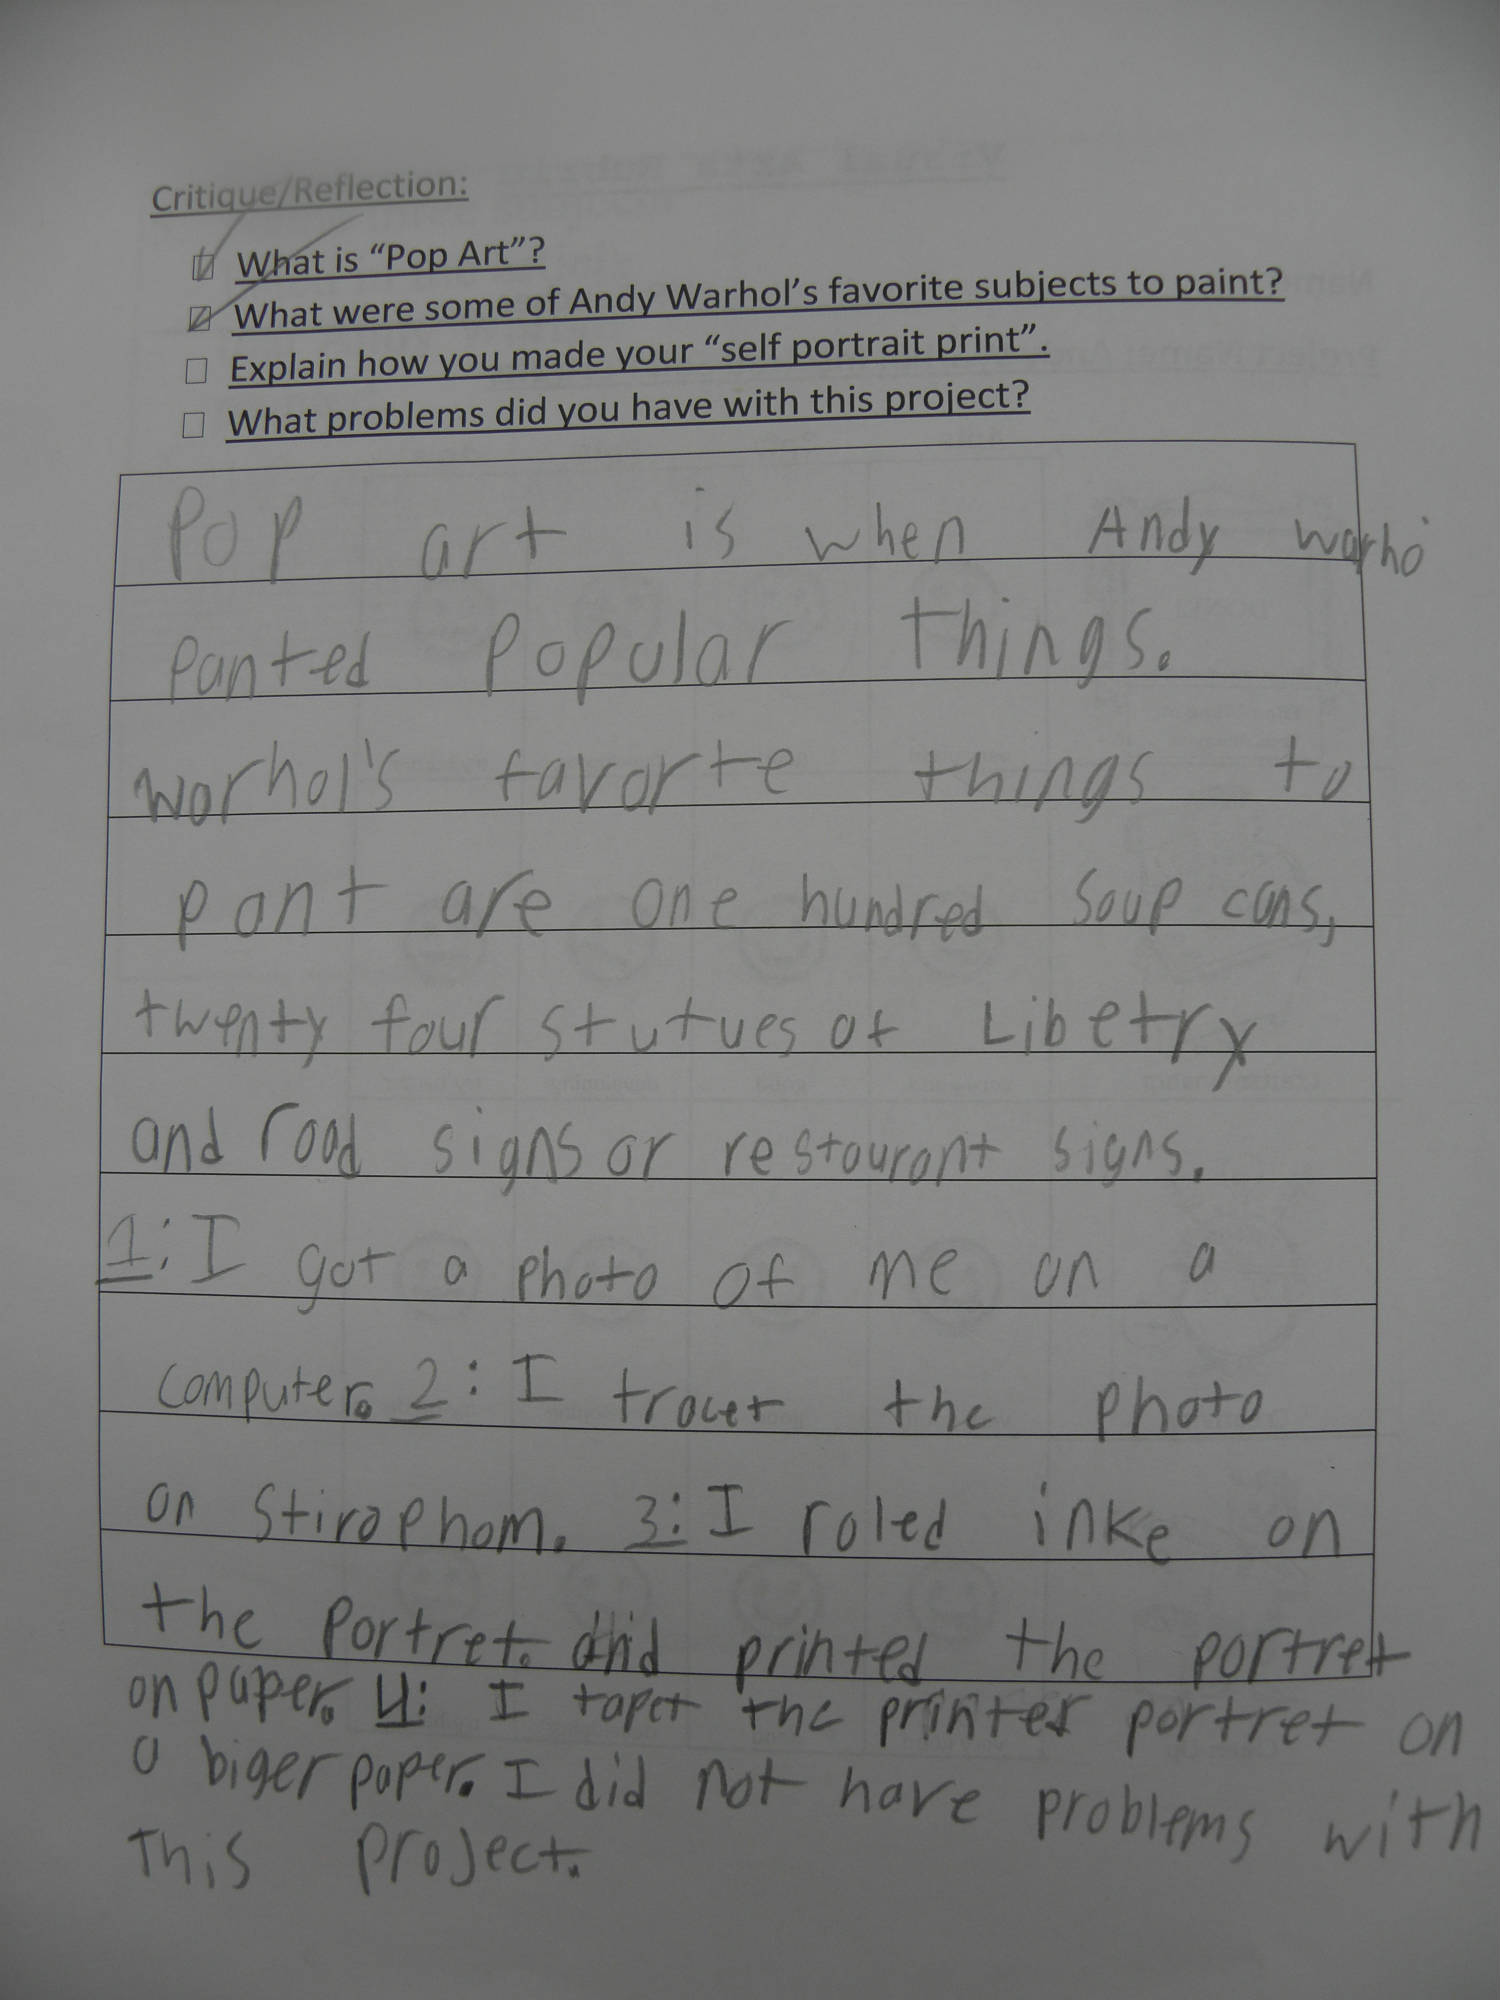 Critique/Reflection:
What is “Pop Art”?
What were some of Andy Warhol’s favorite subjects to paint?
Explain how you made your “self portrait print”.
What problems did you have with this project?
Pop art is when Andy warho
panted popular things.
worhol's favorte things to
pant are one hundred soup cans,
twenty four stutues of Libetry
and road signs or restourant signs.
1: I got a photo of me on a
computer. 2: I tracet the photo
on Stirophom. 3: I roled inke on
the portret. and printed the portret
on paper. 4: I tapet the printet portret on
a biger paper. I did not have problems with
this project.